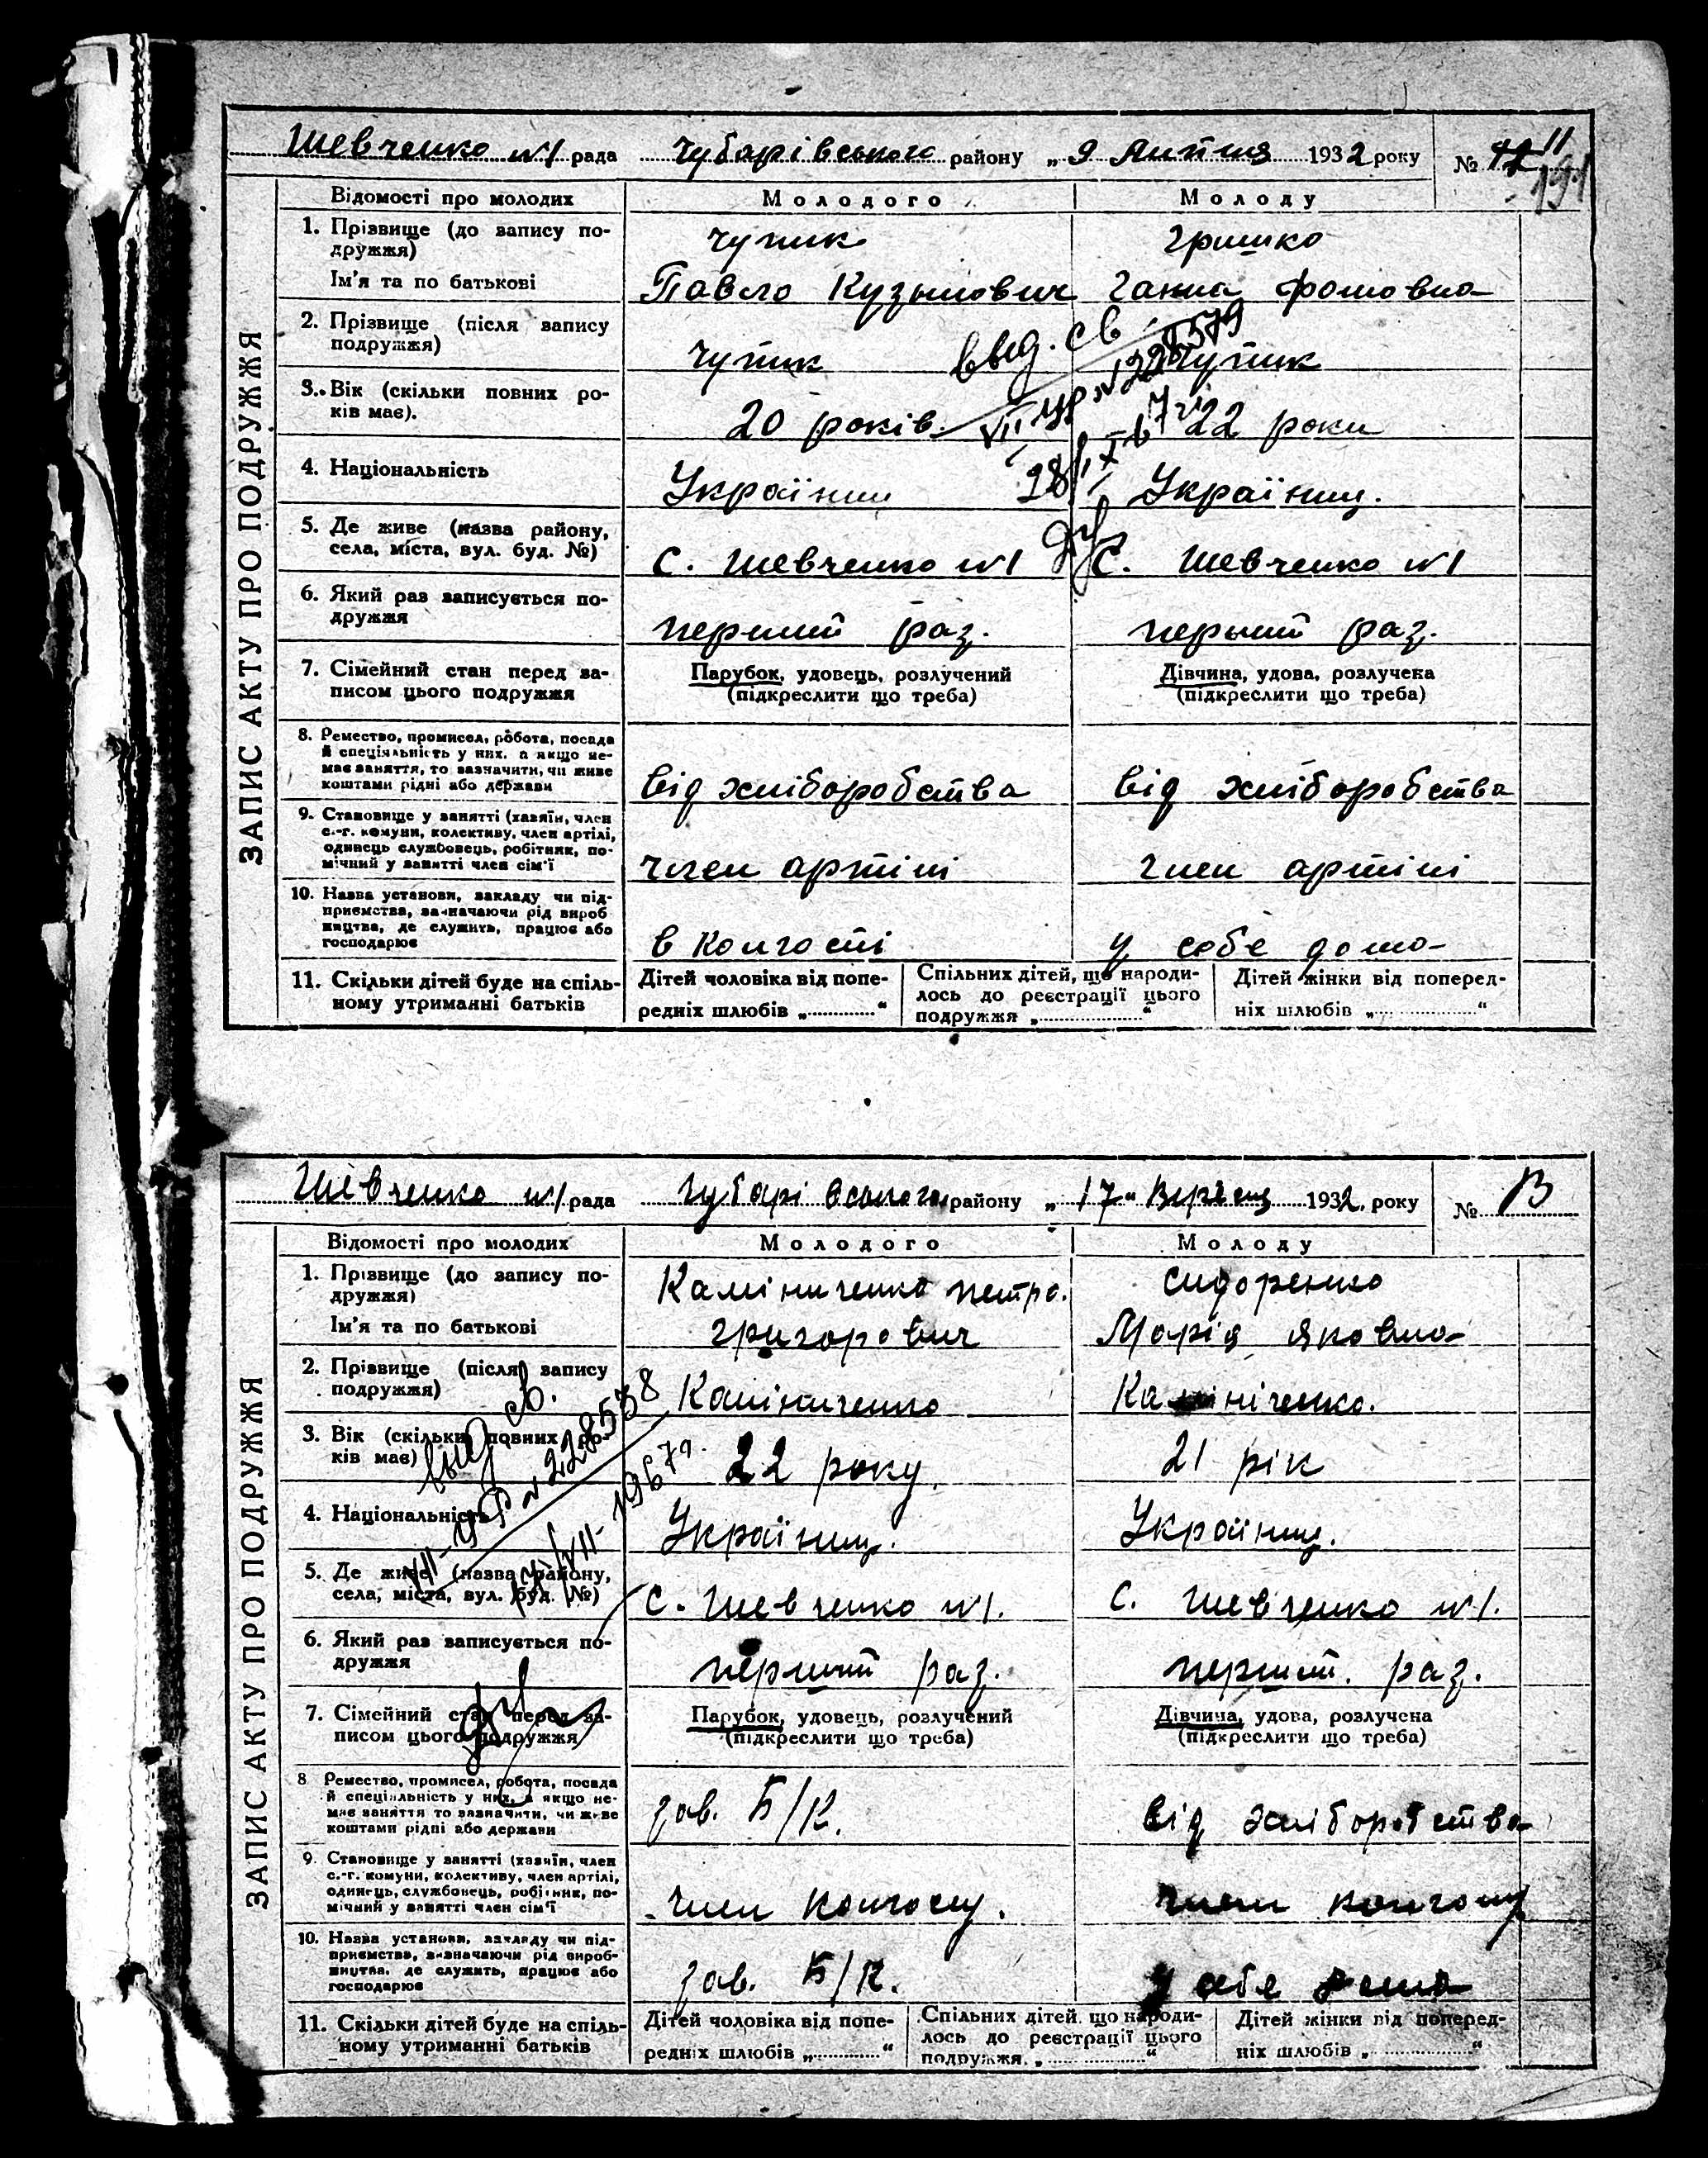 Шевченко №1 рада Чубарівського району „ 9 Липня 1932 року № 11
Відомості про молодих Молодого Молоду
ЗАПИС АКТУ ПРО ПОДРУЖЖЯ
1. Прізвище (до запису по-
дружжя)
Чупик Гришко
Ім'я та по батькові Павло Кузьмович Ганна Фомовна
2. Прізвище (після запису
подружжя)
Чупик Чупик
выд. св
VII УР № 228579
3. Вік (скільки повних ро-
ків має).
20 років. 22 роки
4. Національність Українец Українец.
5. Де живе (назва району,
села, міста, вул. буд. №)
с. Шевченко №1 С. Шевченко №1
6. Який раз записується по-
дружжя
перший раз. перший раз.
7. Сімейний стан перед за-
писом цього подружжя
Парубок, удовець, розлучений
(підкреслити що треба)
Дівчина, удова, розлучена
(підкреслити що треба)
8. Ремество, промисел, робота, посада
й спеціяльність у них, а якщо не-
має заняття, то зазначити, чи живе
коштами рідні або держави
від хліборобства від хліборобства
9. Становище у занятті (хазяїн, член
с.-г. комуни, колективу, член артілі,
одинець службовець, робітник, по-
мічний у занятті член сім'ї
член артілі член артілі
10. Назва установи, закладу чи під-
приємства, зазначаючи рід вироб
ництва, де служить, працює або
господарює
в колгоспі у себе дома
11. Скільки дітей буде на спіль-
ному утриманні батьків
Дітей чоловіка від попе-
редніх шлюбів „ “
Спільних дітей, що народи-
лось до реєстрації цього
подружжя „ “
Дітей жінки від поперед-
ніх шлюбів „ “
Шевченко №1 рада Чубарівського району „ 17 “ Вересня 1932 року №
Відомості про молодих Молодого Молоду
ЗАПИС АКТУ ПРО ПОДРУЖЖЯ
1. Прізвище (до запису по-
дружжя)
Калініченко Петро. Сидоренко
Ім'я та по батькові Григорович Марія Яковна
2. Прізвище (після запису
подружжя)
Калініченко Калініченко.
выд св.
VII-УР № 228558
VII- 1967 г.
3. Вік (скільки повних ро-
ків має)
22 року. 21 рік
4. Національність Українец. Українец.
5. Де живе (назва району,
села, міста, вул. буд. №)
С. Шевченко №1. С. Шевченко №1.
6. Який раз записується по-
дружжя
перший раз. перший раз.
7. Сімейний стан перед за-
писом цього подружжя
Парубок, удовець, розлучений
(підкреслити що треба)
Дівчина, удова, розлучена
(підкреслити що треба)
8 Ремество, промисел, робота, посада
й спеціяльність у них, а якщо не-
має заняття то зазначити, чи живе
коштами рідні або держави
зав. Б/К. від хліборобства
9. Становище у занятті (хазяїн, член
с.-г. комуни, колективу, член артілі,
одинець, службовець, робітник, по-
мічний у занятті член сім'ї
член колгоспу. член колгоспу
10. Назва установи, закладу чи під-
приємства, зазначаючи рід вироб-
ництва, де служить, працює або
господарює
зав. Б/К. у себе дома
11. Скільки дітей буде на спіль-
ному утриманні батьків
Дітей чоловіка від попе-
редніх шлюбів „ “
Спільних дітей, що народи-
лось до реєстрації цього
подружжя „ “
Дітей жінки від поперед-
ніх шлюбів „ “